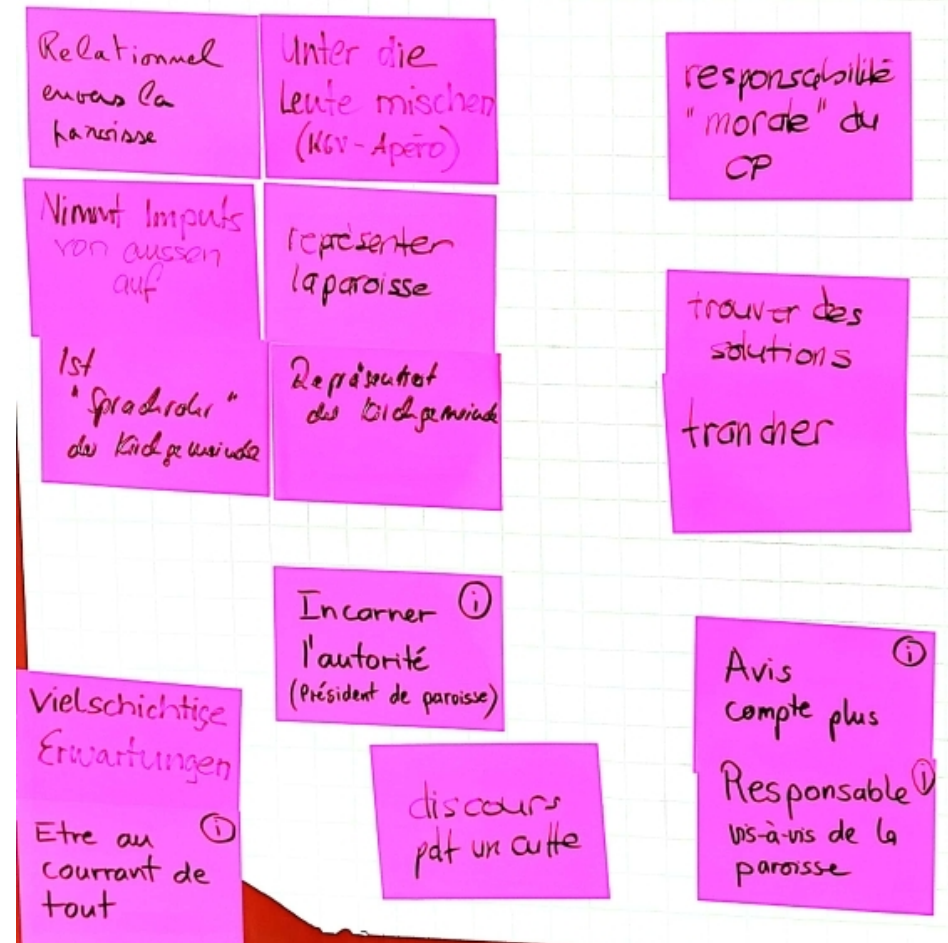 Relationnel
envers la
paroisse
Unter die
Leute mischen
(KGV-Apéro)
responsabilité
"morale" du
CP
Nimmt Inputs
von aussen
auf
représenter
la paroisse
trouver des
solutions
trancher
Ist
"Sprachrohr"
der Kirchgemeinde
Repräsentiert
die Kirchgemeinde
Incarner i
l'autorité
(Président de paroisse)
Avis i
compte plus
Vielschichtige
Erwartungen
Responsable i
vis-à-vis de la
paroisse
discours
pdt un culte
Etre au i
courrant de
tout